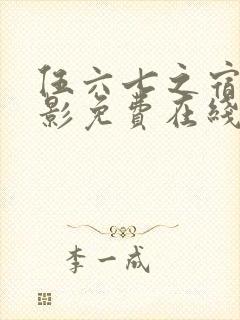 伍六七之宿
影免费在线
李一成